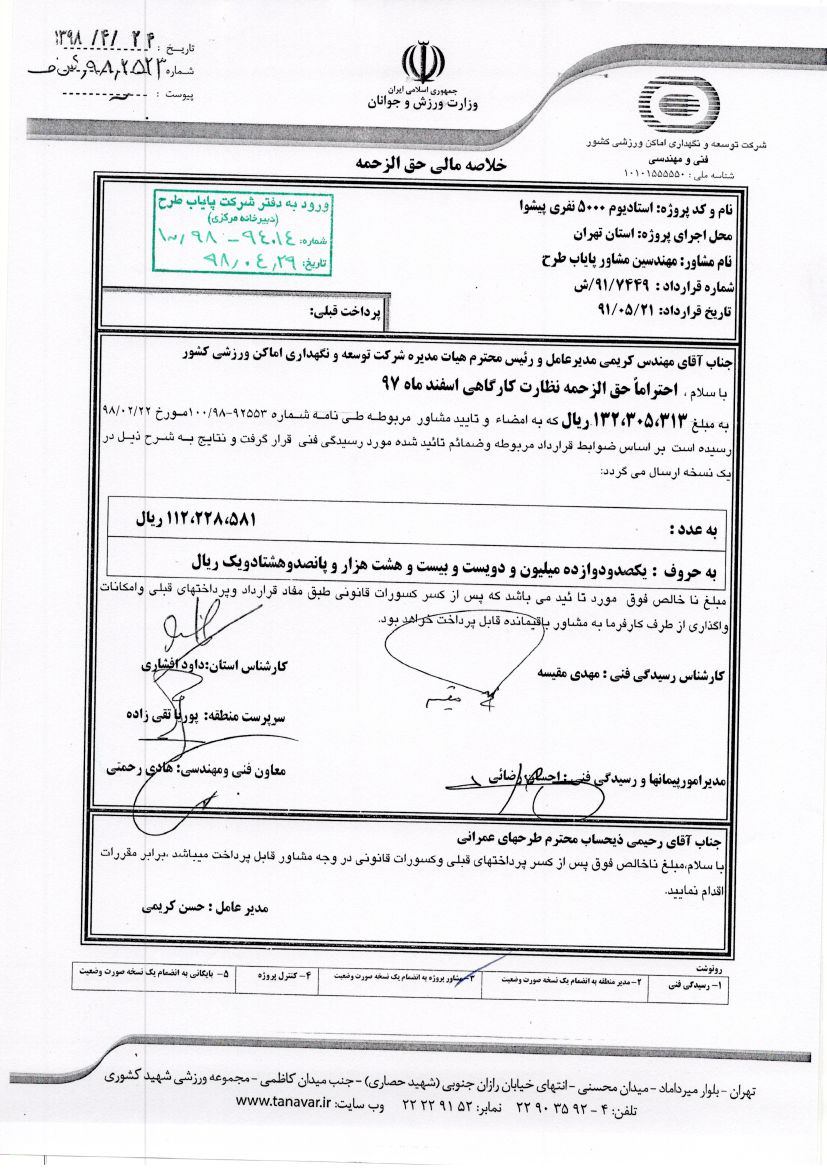 تاریخ : ۱۳۹۸/۴/۲۴
شماره
پیوست :
جمهوری اسلامی ایران
وزارت ورزش و جوانان
شرکت توسعه و نگهداری اماکن ورزشی کشور
فنی و مهندسی
شناسه ملی : ۱۰۱۰۱۵۵۵۵۵۰
خلاصه مالی حق الزحمه
ورود به دفتر شرکت پایاب طرح
(دبیرخانه مرکزی)
شماره: ۱۰۰٫۹۸-۹۴۰۱۴
تاریخ: ۹۸٫۰۴٫۲۹
نام و کد پروژه: استادیوم ۵۰۰۰ نفری پیشوا
محل اجرای پروژه: استان تهران
نام مشاور: مهندسین مشاور پایاب طرح
شماره قرارداد : ۹۱/۷۴۴۹/ش
تاریخ قرارداد: ۹۱/۰۵/۲۱
پرداخت قبلی:
جناب آقای مهندس کریمی مدیرعامل و رئیس محترم هیات مدیره شرکت توسعه و نگهداری اماکن ورزشی کشور
با سلام ، احتراماً حق الزحمه نظارت کارگاهی اسفند ماه ۹۷
به مبلغ ۱۳۲،۳۰۵،۳۱۳ ریال که به امضاء و تایید مشاور مربوطه طی نامه شماره ۹۲۵۵۳-۱۰۰/۹۸مورخ ۹۸/۰۲/۲۲
رسیده است بر اساس ضوابط قرارداد مربوطه وضمائم تائید شده مورد رسیدگی فنی قرار گرفت و نتایج به شرح ذیل در
یک نسخه ارسال می گردد:
به عدد : ۱۱۲،۲۲۸،۵۸۱ ریال
به حروف : یکصدودوازده میلیون و دویست و بیست و هشت هزار و پانصدوهشتادویک ریال
مبلغ نا خالص فوق مورد تا ئید می باشد که پس از کسر کسورات قانونی طبق مفاد قرارداد وپرداختهای قبلی وامکانات
واگذاری از طرف کارفرما به مشاور باقیمانده قابل پرداخت خواهد بود.
کارشناس رسیدگی فنی : مهدی مقیسه
کارشناس استان:داود افشاری
سرپرست منطقه: پوریا تقی زاده
مدیرامورپیمانها و رسیدگی فنی: احسان رضائی
معاون فنی ومهندسی: هادی رحمتی
جناب آقای رحیمی ذیحساب محترم طرحهای عمرانی
با سلام،مبلغ ناخالص فوق پس از کسر پرداختهای قبلی وکسورات قانونی در وجه مشاور قابل پرداخت میباشد .برابر مقررات
اقدام نمایید.
مدیر عامل : حسن کریمی
رونوشت
۱- رسیدگی فنی
۲-مدیر منطقه به انضمام یک نسخه صورت وضعیت
۳-مشاور پروژه به انضمام یک نسخه صورت وضعیت
۴- کنترل پروژه
۵- بایگانی به انضمام یک نسخه صورت وضعیت
تهران - بلوار میرداماد - میدان محسنی - انتهای خیابان رازان جنوبی (شهید حصاری) - جنب میدان کاظمی - مجموعه ورزشی شهید کشوری
تلفن: ۴ - ۹۲ ۳۵ ۹۰ ۲۲ نمابر: ۵۲ ۹۱ ۲۲ ۲۲ وب سایت: www.tanavar.ir